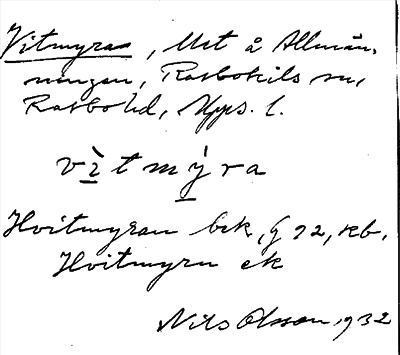 Vitmyran, Utt å Allmän-
ningen, Rasbokils sn,
Rasbo hd, Upps. l.
vìtmýra
Hvitmyran bek, G 92, kb.
Hvitmyrn ek
Nils Olsson 1932